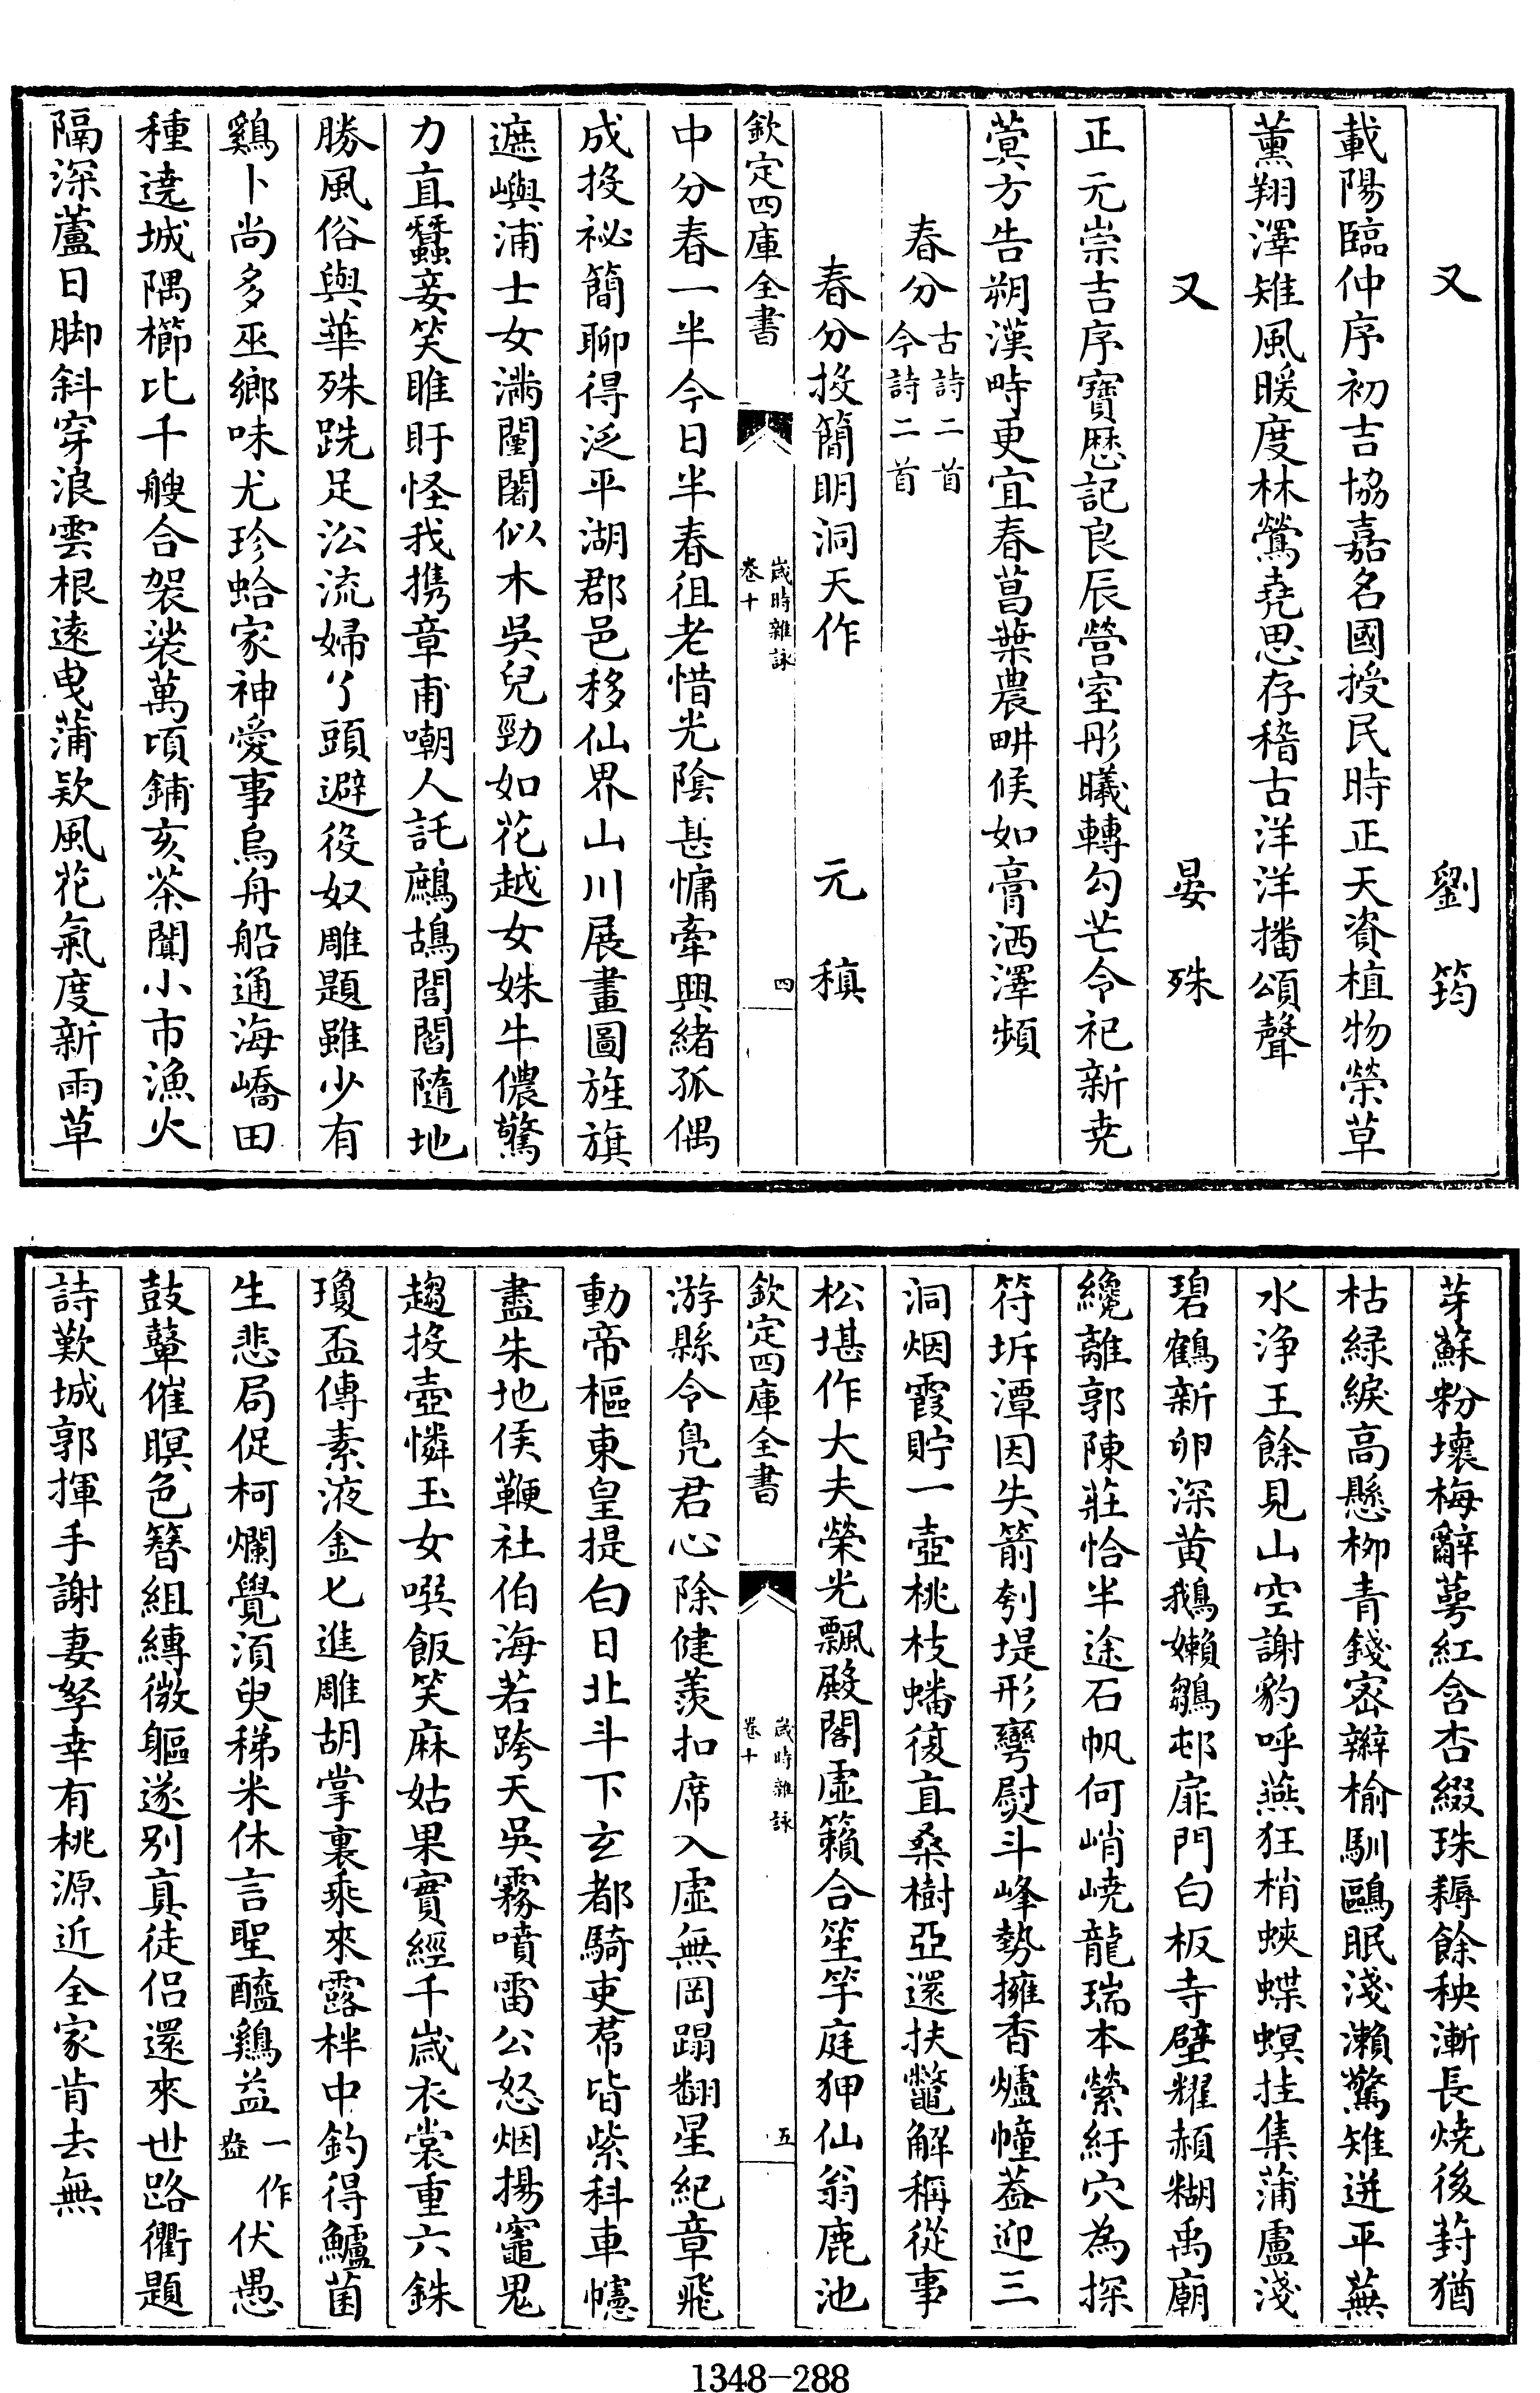 又　劉筠
載陽臨仲序初吉協嘉名國授民時正天資植物榮草
薰翔澤雉風暖度林鶯堯思存稽古洋洋播頌聲
又　晏殊
正元崇吉序寶厯記良辰營室彤曦轉勾芒令祀新堯
蓂方告朔漢畤更宜春菖葉農畊候如膏洒澤頻
春分古詩二首今詩二首
春分投簡明洞天作　元稹
欽定四庫全書　歲時雜詠卷十　四
中分春一半今日半春徂老惜光陰甚慵牽興緒孤偶
成投祕簡聊得泛平湖郡邑移仙界山川展畫圖旌旗
遮嶼浦士女滿闉闍似木吳兒勁如花越女姝牛儂驚
力直蠶妾笑睢盱怪我携章甫嘲人託鷓鴣閭閻隨地
勝風俗與華殊跣足沿流婦丫頭避役奴雕題雖少有
鷄卜尚多巫鄉味尤珍蛤家神愛事烏舟船通海嶠田
種遶城隅櫛比千艘合袈裟萬頃鋪亥茶闐小市漁火
隔深蘆日脚斜穿浪雲根遠曳蒲欵風花氣度新雨草
芽蘇粉壞梅辭萼紅含杏綴珠耨餘秧漸長燒後葑猶
枯緑綟高懸柳青錢密辮榆馴鷗眠淺瀨驚雉迸平蕪
水浄王餘見山空謝豹呼燕狂梢蛺蝶螟挂集蒲盧淺
碧鶴新卵深黄鵝嬾雛邨扉門白板寺壁耀赬糊禹廟
纔離郭陳莊恰半途石帆何峭嶢龍瑞本縈紆穴為探
符坼潭因失箭刳堤形彎熨斗峰勢擁香爐幢葢迎三
洞烟霞貯一壺桃枝蟠復直桑樹亞還扶鼈解稱從事
松堪作大夫榮光飄殿閣虚籟合笙竽庭狎仙翁鹿池
欽定四庫全書　歲時雜詠卷十　五
游縣令鳧君心除健羡扣席入虛無岡蹋翻星紀章飛
動帝樞東皇提白日北斗下玄都騎吏裙皆紫科車幰
盡朱地侯鞭社伯海若跨天吳霧噴雷公怒烟揚竈鬼
趨投壺憐玉女噀飯笑麻姑果實經千歲衣裳重六銖
瓊盃傳素液金匕進雕胡掌裏乘來露柈中釣得鱸菌
生悲局促柯爛覺湏臾稊米休言聖醯鷄益一作盎伏愚
鼓鼙催暝色簪組縛微軀遂别真徒侣還來世路衢題
詩歎城郭揮手謝妻孥幸有桃源近全家肯去無
1348-288